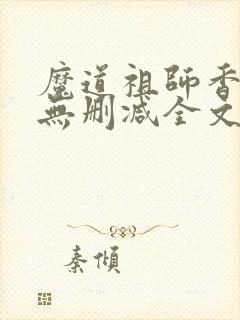 魔道祖師香
無刪減全文
秦傾